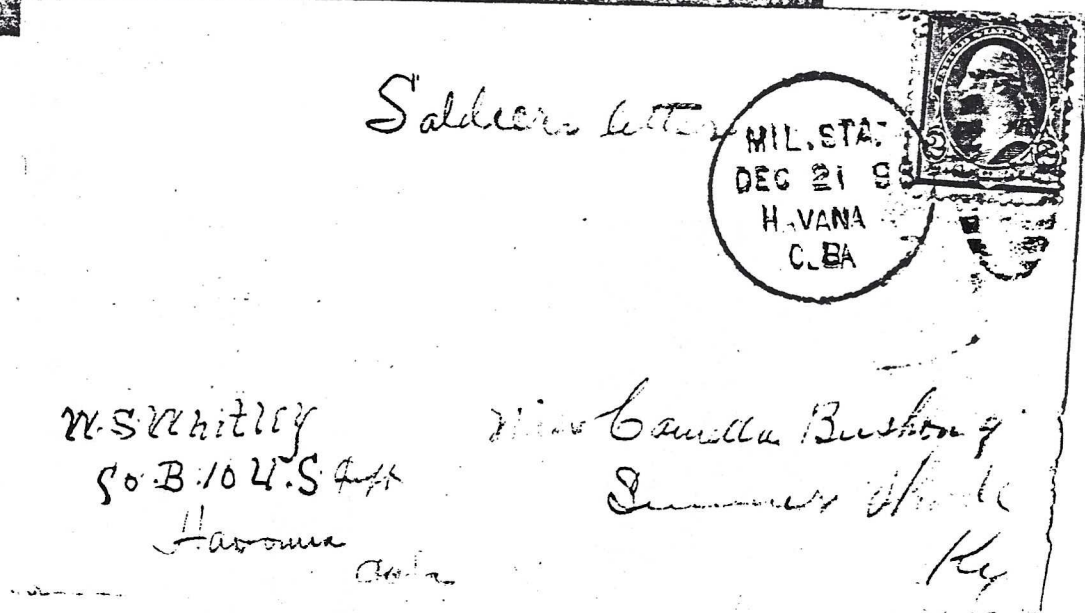 Soldiers letter
MIL. STA.
DEC 21 9
HAVANA
CUBA
2 2
W. S. Whitley
Co. B. 10 U.S. Inft
Havana
Cuba
Miss Camella Bushong
Summer Shade
Ky